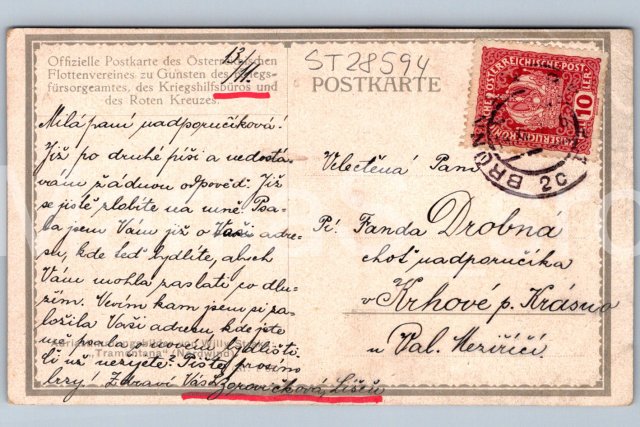 Offizielle Postkarte des Österreichischen
Flottenvereines zu Gunsten des Kriegs-
fürsorgeamtes, des Kriegshilfsbüros und
des Roten Kreuzes.
13/
ST28594
POSTKARTE
10
BRÜNN
2C
Milá paní nadporučíková!
Již po druhé píši a nedostá-
vám žádnou odpověď. Již
se jistě zlobíte na mne. Psa-
la jsem Vám již o Vaši adre-
su, kde teď bydlíte, abych
Vám mohla zaslati po dlu-
žím. Nevím kam jsem si za-
ložila Vaši adresu, kde jste
měla
li už nezijete? Jistě prosím
brzy! Zdraví Vás Líšeň
"Tramontana" (Nordwind)
Velectěná Paní
Pí. Fanda Drobná
choť nadporučíka
v Krhové p. Krásno
u Val. Meziříčí.